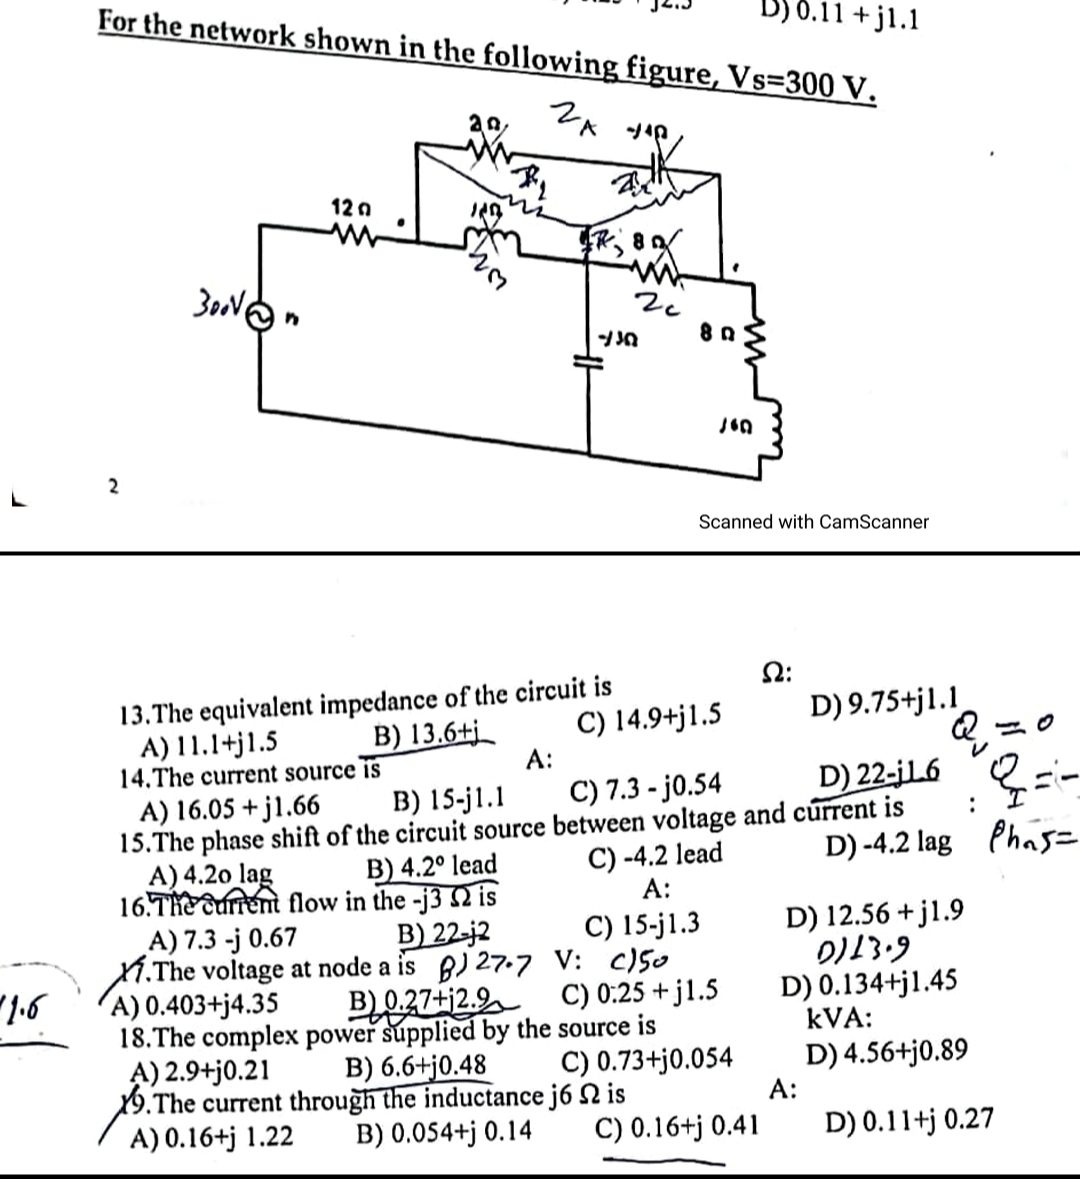 D) 0.11 + j1.1
For the network shown in the following figure, Vs=300 V.
2Ω
ZA
-j4Ω
R1
12 Ω
R3
8 Ω
ZB
ZC
300V
-j3Ω
8 Ω
j6Ω
2
Scanned with CamScanner
13.The equivalent impedance of the circuit is Ω:
A) 11.1+j1.5 B) 13.6+j C) 14.9+j1.5 D) 9.75+j1.1
14.The current source is A:
A) 16.05 + j1.66 B) 15-j1.1 C) 7.3 - j0.54 D) 22-j1.6
15.The phase shift of the circuit source between voltage and current is :
A) 4.2o lag B) 4.2° lead C) -4.2 lead D) -4.2 lag
16.The current flow in the -j3 Ω is A:
A) 7.3 -j 0.67 B) 22-j2 C) 15-j1.3 D) 12.56 + j1.9
17.The voltage at node a is V:
B) 27.7 C) 50 D) 13.9
A) 0.403+j4.35 B) 0.27+j2.9 C) 0.25 + j1.5 D) 0.134+j1.45
18.The complex power supplied by the source is kVA:
A) 2.9+j0.21 B) 6.6+j0.48 C) 0.73+j0.054 D) 4.56+j0.89
19.The current through the inductance j6 Ω is A:
A) 0.16+j 1.22 B) 0.054+j 0.14 C) 0.16+j 0.41 D) 0.11+j 0.27